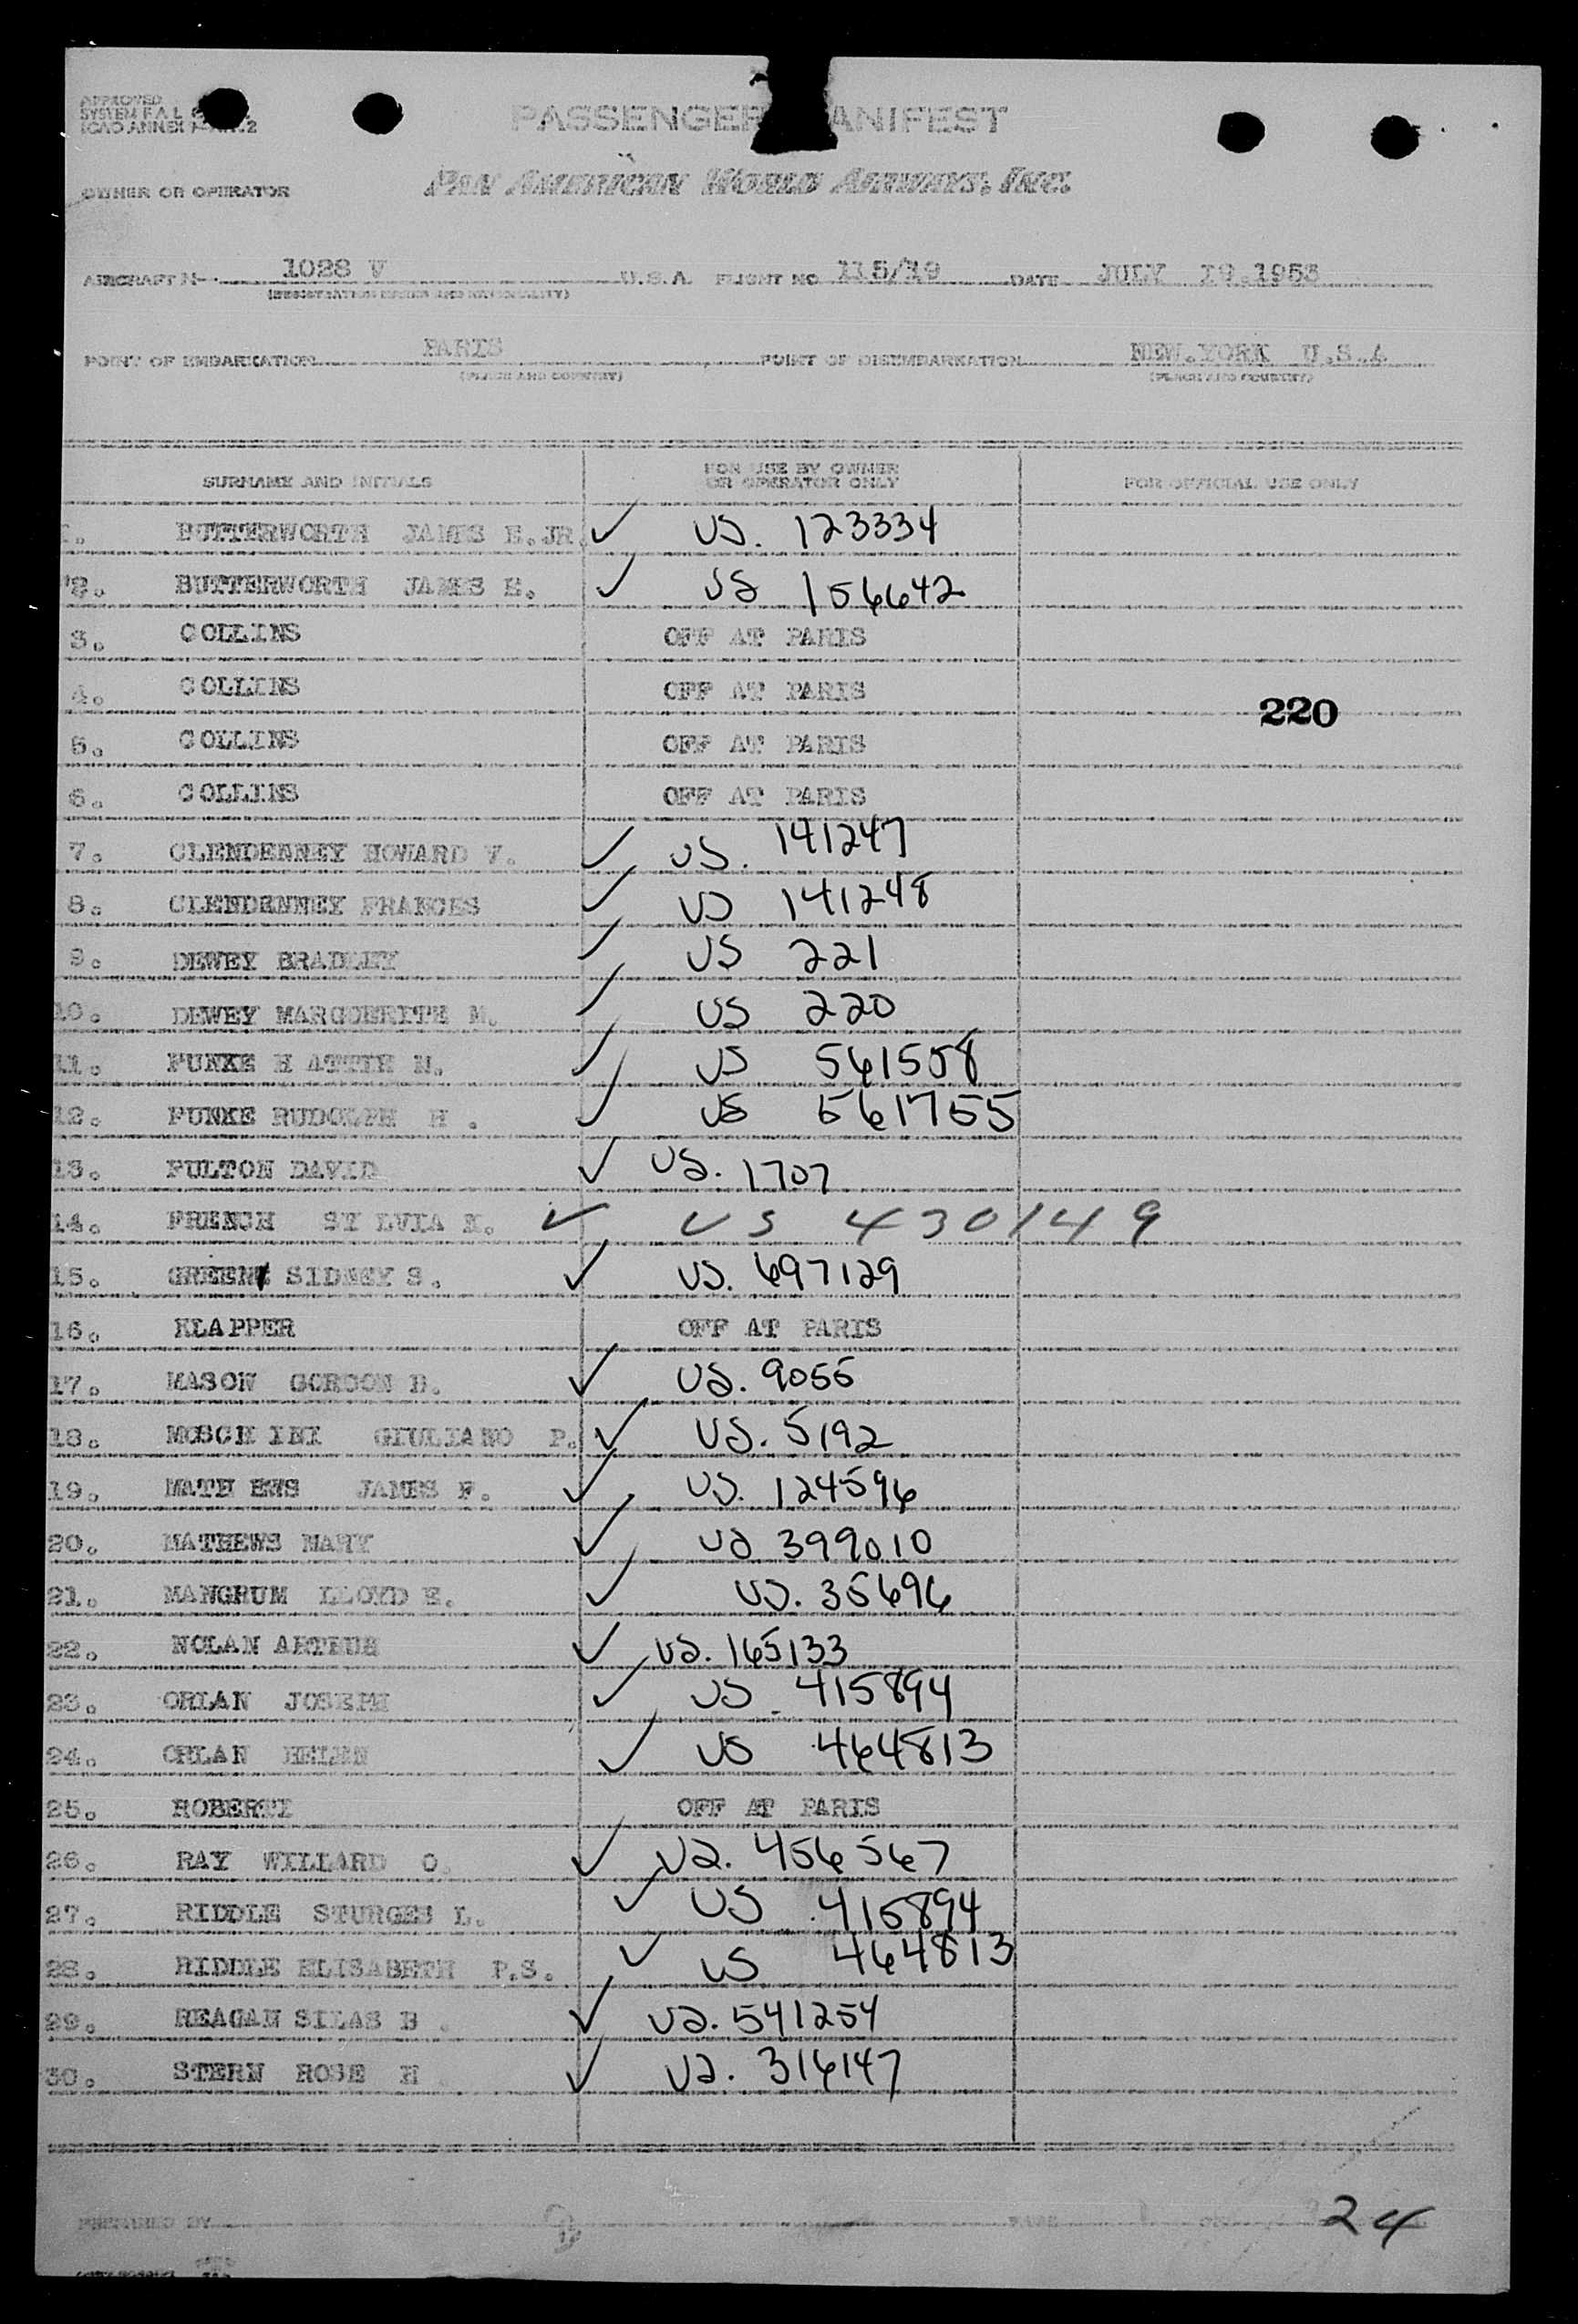 APPROVED
SYSTEM F.A.L
ICAO ANNEX
PASSENGER MANIFEST
OWNER OR OPERATOR PAN AMERICAN WORLD AIRWAYS, INC.
AIRCRAFT N- 1028 V U.S.A. FLIGHT NO 115/19 DATE JULY 19.1953
(REGISTRATION MARKS AND NATIONALITY)
POINT OF EMBARKATION PARIS POINT OF DISEMBARKATION NEW.YORK U.S.A
(PLACE AND COUNTRY) (PLACE AND COUNTRY)
SURNAME AND INITIALS FOR USE BY OWNER OR OPERATOR ONLY FOR OFFICIAL USE ONLY
1. BUTTERWORTH JAMES E.JR. ✓ US. 123334
2. BUTTERWORTH JAMES E. ✓ US 156642
3. COLLINS OFF AT PARIS
4. COLLINS OFF AT PARIS
220
5. COLLINS OFF AT PARIS
6. COLLINS OFF AT PARIS
7. CLENDENNEY HOWARD V. ✓ US. 141247
8. CLENDENNEY FRANCES ✓ US 141248
9. DEWEY BRADLEY ✓ US 221
10. DEWEY MARGUERITE M. ✓ US 220
11. FUNKE H ATTIE N. ✓ US 561508
12. FUNKE RUDOLPH H . ✓ US 561755
13. FULTON DAVID ✓ US. 1707
14. FRENCH SY LVIA K. ✓ US 430149
15. GREEN SIDNEY S. ✓ US. 697129
16. KLAPPER OFF AT PARIS
17. MASON GORDON B. ✓ US. 9055
18. MOSCH INI GIULIANO P. ✓ US. 5192
19. MATH EWS JAMES F. ✓ US. 124596
20. MATHEWS MARY ✓ US 399010
21. MANGRUM LLOYD E. ✓ US. 35696
22. NOLAN ARTHUR ✓ US. 165133
23. ORLAN JOSEPH ✓ US 415894
24. ORLAN HELEN ✓ US 464813
25. ROBERTI OFF AT PARIS
26. RAY WILLARD O. ✓ US. 456567
27. RIDDLE STURGES L. ✓ US 415894
28. RIDDLE ELISABETH P.S. ✓ US 464813
29. REAGAN SILAS B . ✓ US. 541254
30. STERN ROSE H ✓ US. 316147
PREPARED BY PAGE 24